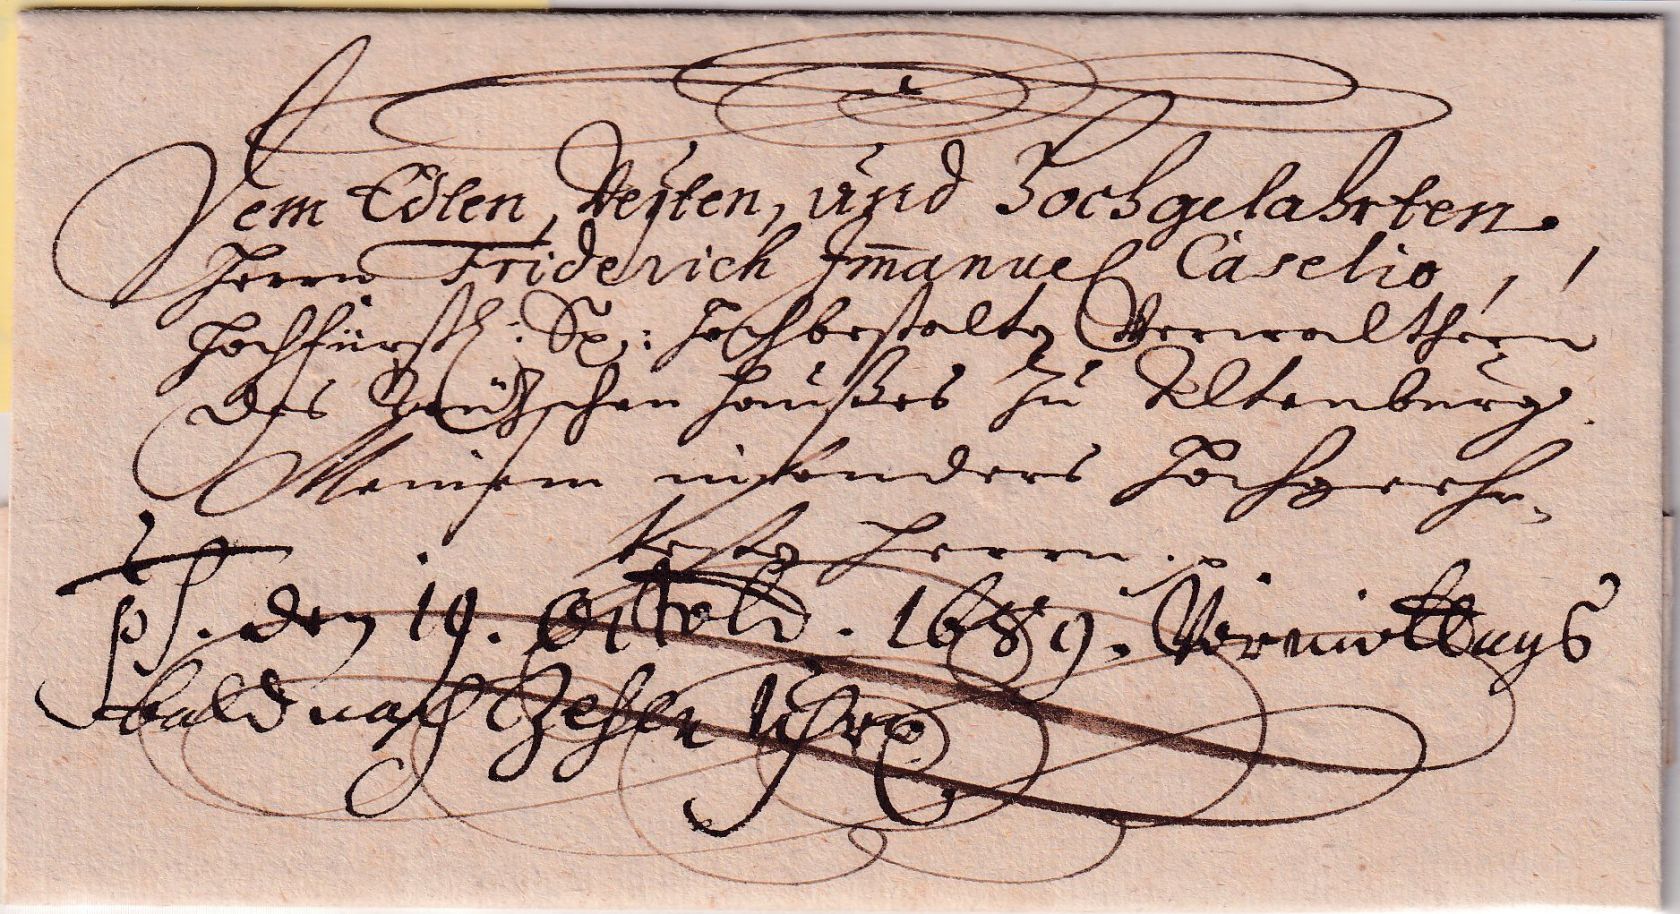 Dem Edlen, Vesten, und Hochgelahrten
Herrn Friderich Im̄anuel Caselio,
Hochfürstl: Sx: Hochbestalten Verwalthern
des Teützschen Haußes zu Altenburg.
Meinem insonders Hochgeehr-
testen Herrn.
ps. den 19. Octobr. 1689. Vormittags
bald nach Zehen Uhr